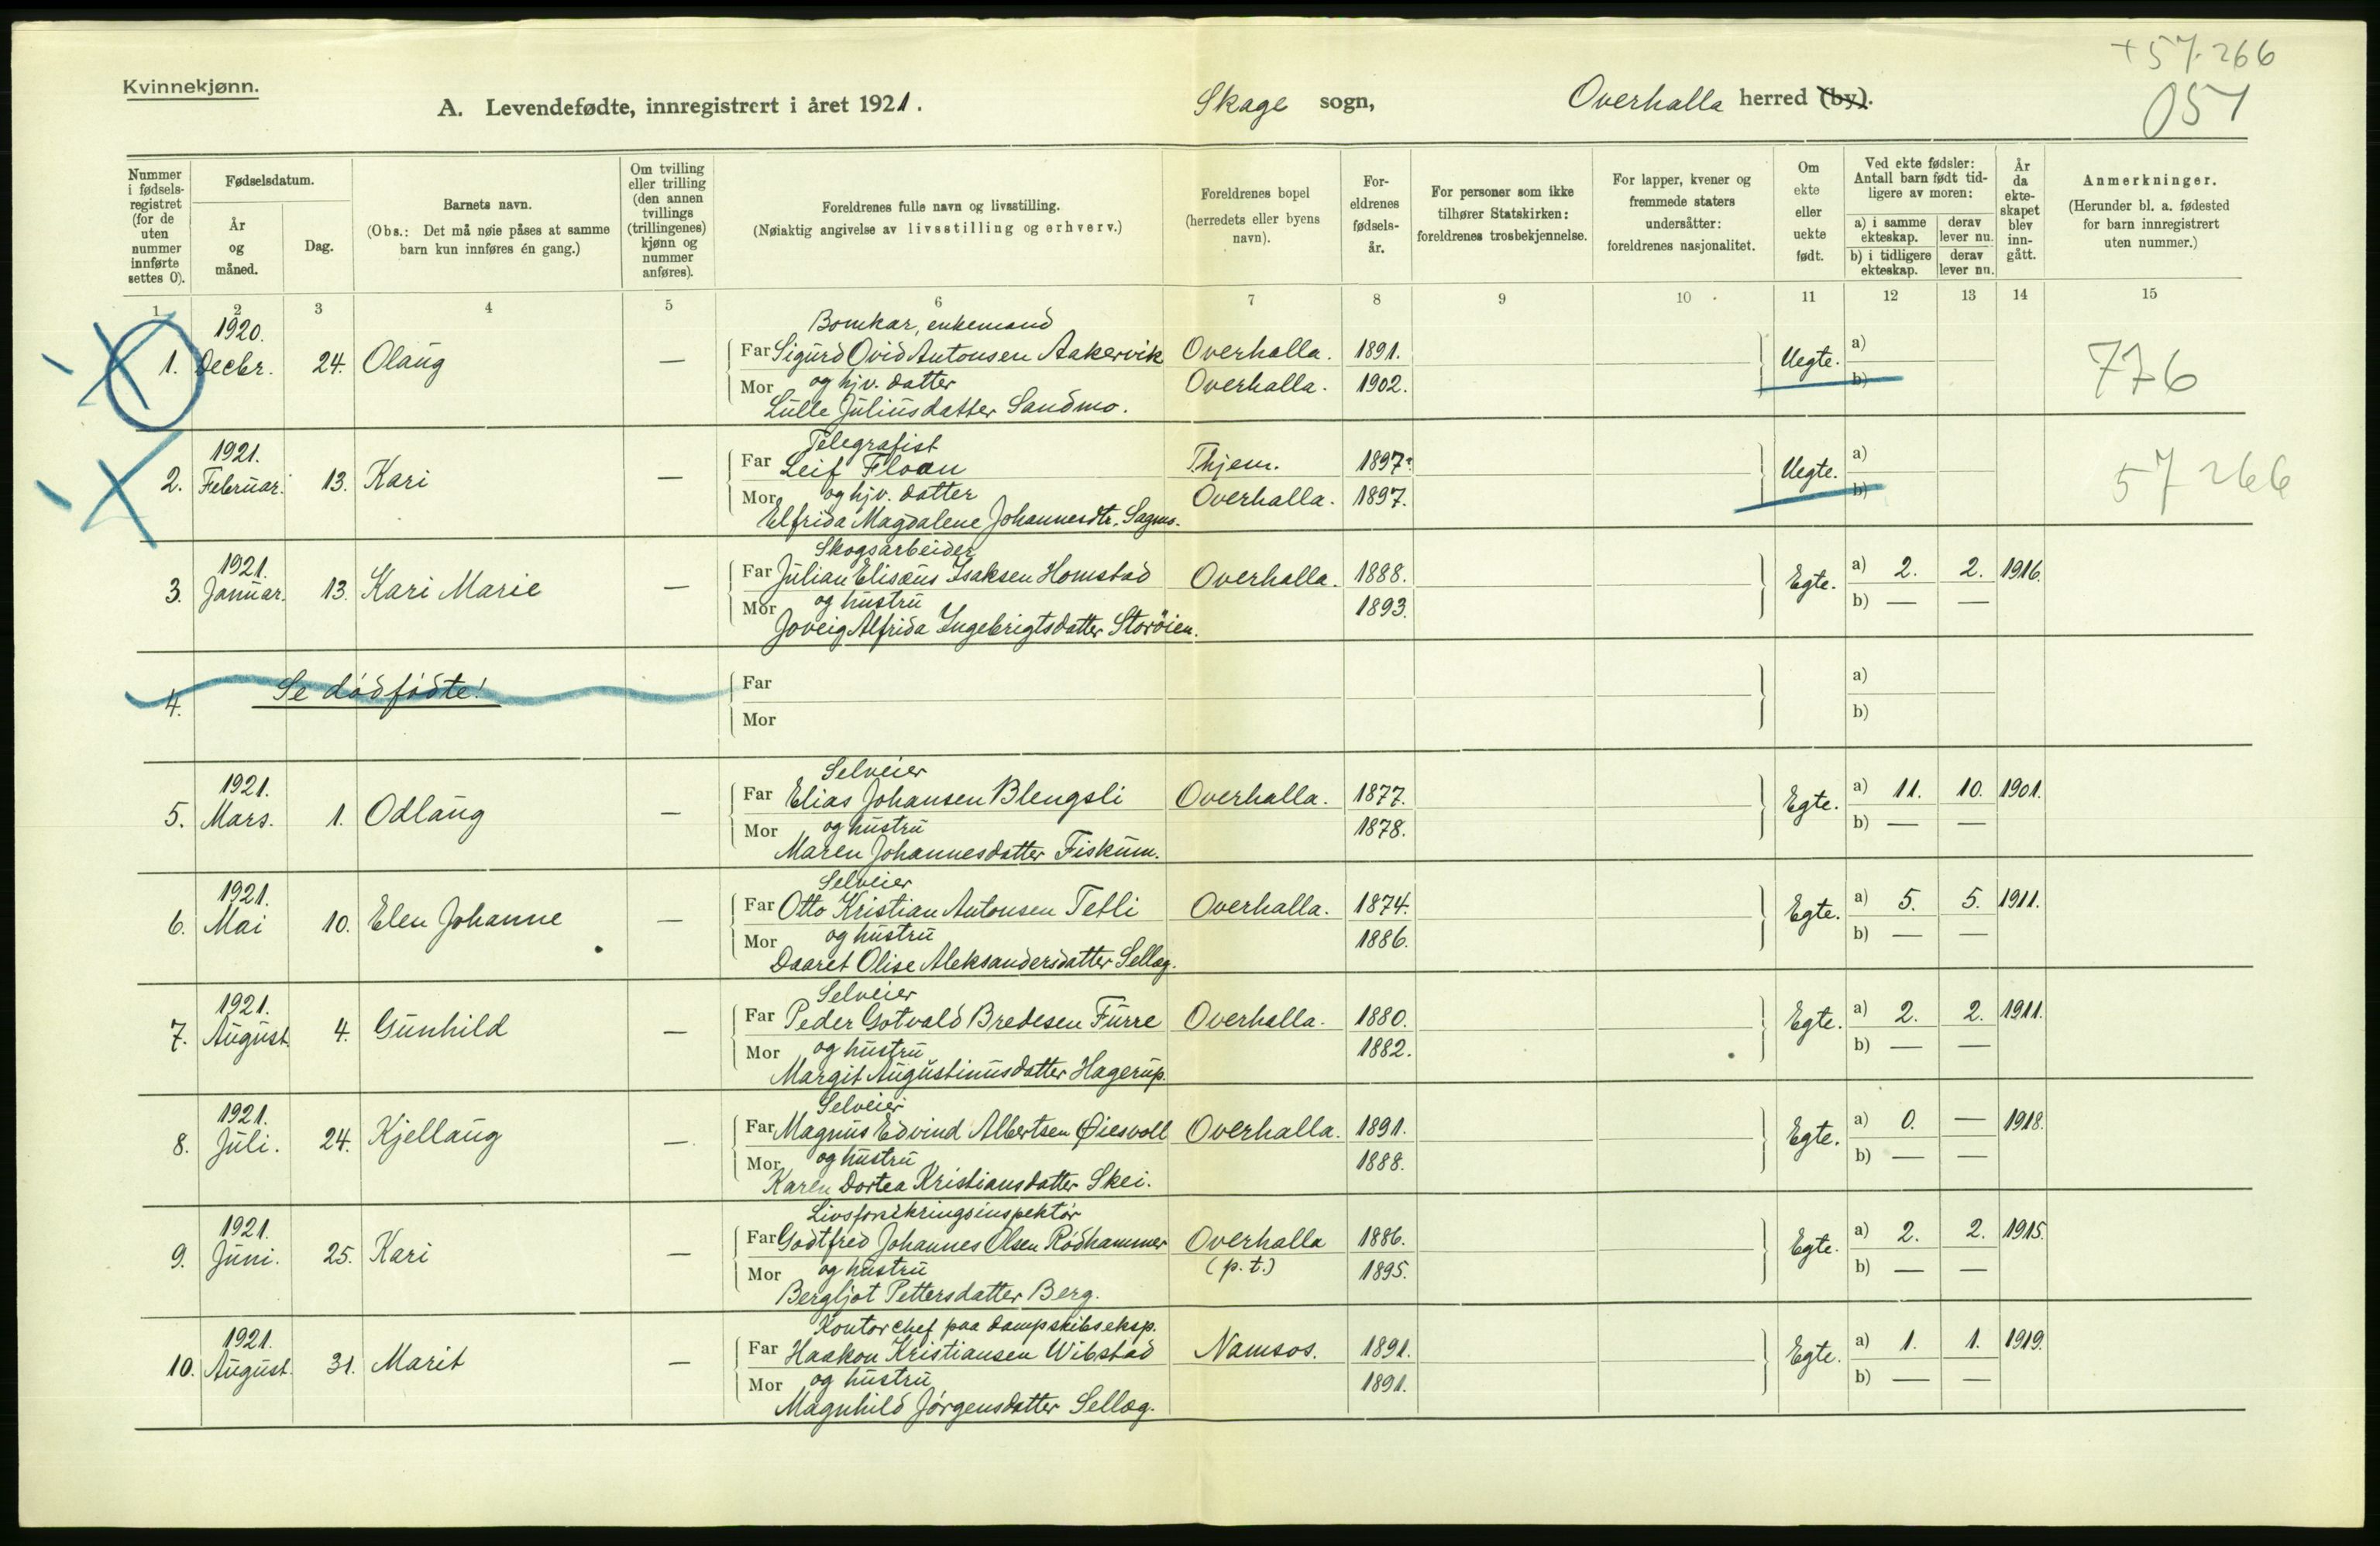 Kvinnekjønn.
+ 57. 266
051
A. Levendefødte, innregistrert i året 1921. Skage sogn, Overhalla herred (by).
Nummer i fødselsregistret (for de uten nummer innførte settes 0).
Fødselsdatum.
År og måned.
Dag.
Barnets navn.
(Obs.: Det må nøie påses at samme barn kun innføres én gang.)
Om tvilling eller trilling (den annen tvillings (trillingenes) kjønn og nummer anføres).
Foreldrenes fulle navn og livsstilling.
(Nøiaktig angivelse av livsstilling og erhverv.)
Foreldrenes bopel (herredets eller byens navn).
Foreldrenes fødselsår.
For personer som ikke tilhører Statskirken: foreldrenes trosbekjennelse.
For lapper, kvener og fremmede staters undersåtter: foreldrenes nasjonalitet.
Om ekte eller uekte født.
Ved ekte fødsler: Antall barn født tidligere av moren:
a) i samme ekteskap. derav lever nu.
b) i tidligere ekteskap. derav lever nu.
År da ekteskapet blev inngått.
Anmerkninger.
(Herunder bl. a. fødested for barn innregistrert uten nummer.)
1 2 3 4 5 6 7 8 9 10 11 12 13 14 15
1920. Bomkar, enkemand
1. Decbr. 24. Olaug — Far Sigurd Ovid Antonsen Aakervik Overhalla. 1891. Uegte. a) 776
Mor og hjv. datter Overhalla. 1902. b)
Lulle Juliusdatter Sandmo.
1921. Telegrafist
2. Februar. 13. Kari — Far Leif Floan Thjem. 1897. Uegte. a) 57 266
Mor og hjv. datter Overhalla. 1897. b)
Elfrida Magdalene Johannesdtr. Sagmo.
1921. Skogsarbeider
3. Januar. 13. Kari Marie — Far Julian Elisæus Isaksen Homstad Overhalla. 1888. Egte. a) 2. 2. 1916.
Mor og hustru 1893. b) — —
Joveig Alfrida Ingebrigtsdatter Storöien.
4. Se dödfödte! Far a)
Mor b)
1921. Selveier
5. Mars. 1. Odlaug — Far Elias Johansen Blengsli Overhalla. 1877. Egte. a) 11. 10. 1901.
Mor og hustru 1878. b) — —
Maren Johannesdatter Fiskum.
1921. Selveier
6. Mai 10. Elen Johanne — Far Otto Kristian Antonsen Tetli Overhalla. 1874. Egte. a) 5. 5. 1911.
Mor og hustru 1886. b) — —
Daaret Olise Aleksandersdatter Sellæg.
1921. Selveier
7. August. 4. Gunhild — Far Peder Gotvald Bredesen Furre Overhalla. 1880. Egte. a) 2. 2. 1911.
Mor og hustru 1882. b) — —
Margit Augustinusdatter Hagerup.
1921. Selveier
8. Juli. 24. Kjellaug — Far Magnus Edvind Albertsen Øiesvoll Overhalla. 1891. Egte. a) 0. — 1918.
Mor og hustru 1888. b) — —
Karen Dortea Kristiansdatter Skei.
1921. Livsforsikringsinspektör
9. Juni. 25. Kari — Far Godtfred Johannes Olsen Rödhammer Overhalla 1886. Egte. a) 2. 2. 1915.
Mor og hustru (p. t.) 1895. b) — —
Bergljot Pettersdatter Berg.
1921. Kontorchef paa dampskibseksp.
10. August. 31. Marit — Far Haakon Kristiansen Wibstad Namsos. 1891. Egte. a) 1. 1. 1919.
Mor og hustru 1891. b) — —
Magnhild Jörgensdatter Sellæg.